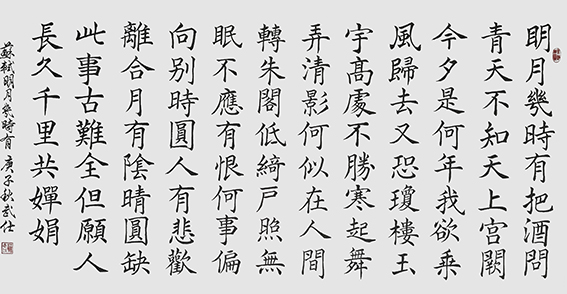 明月幾時有把酒問
青天不知天上宮闕
今夕是何年我欲乘
風歸去又恐瓊樓玉
宇高處不勝寒起舞
弄清影何似在人間
轉朱閣低綺戶照無
眠不應有恨何事偏
向別時圓人有悲歡
離合月有陰晴圓缺
此事古難全但願人
長久千里共嬋娟
蘇軾明月幾時有 庚子秋武仕